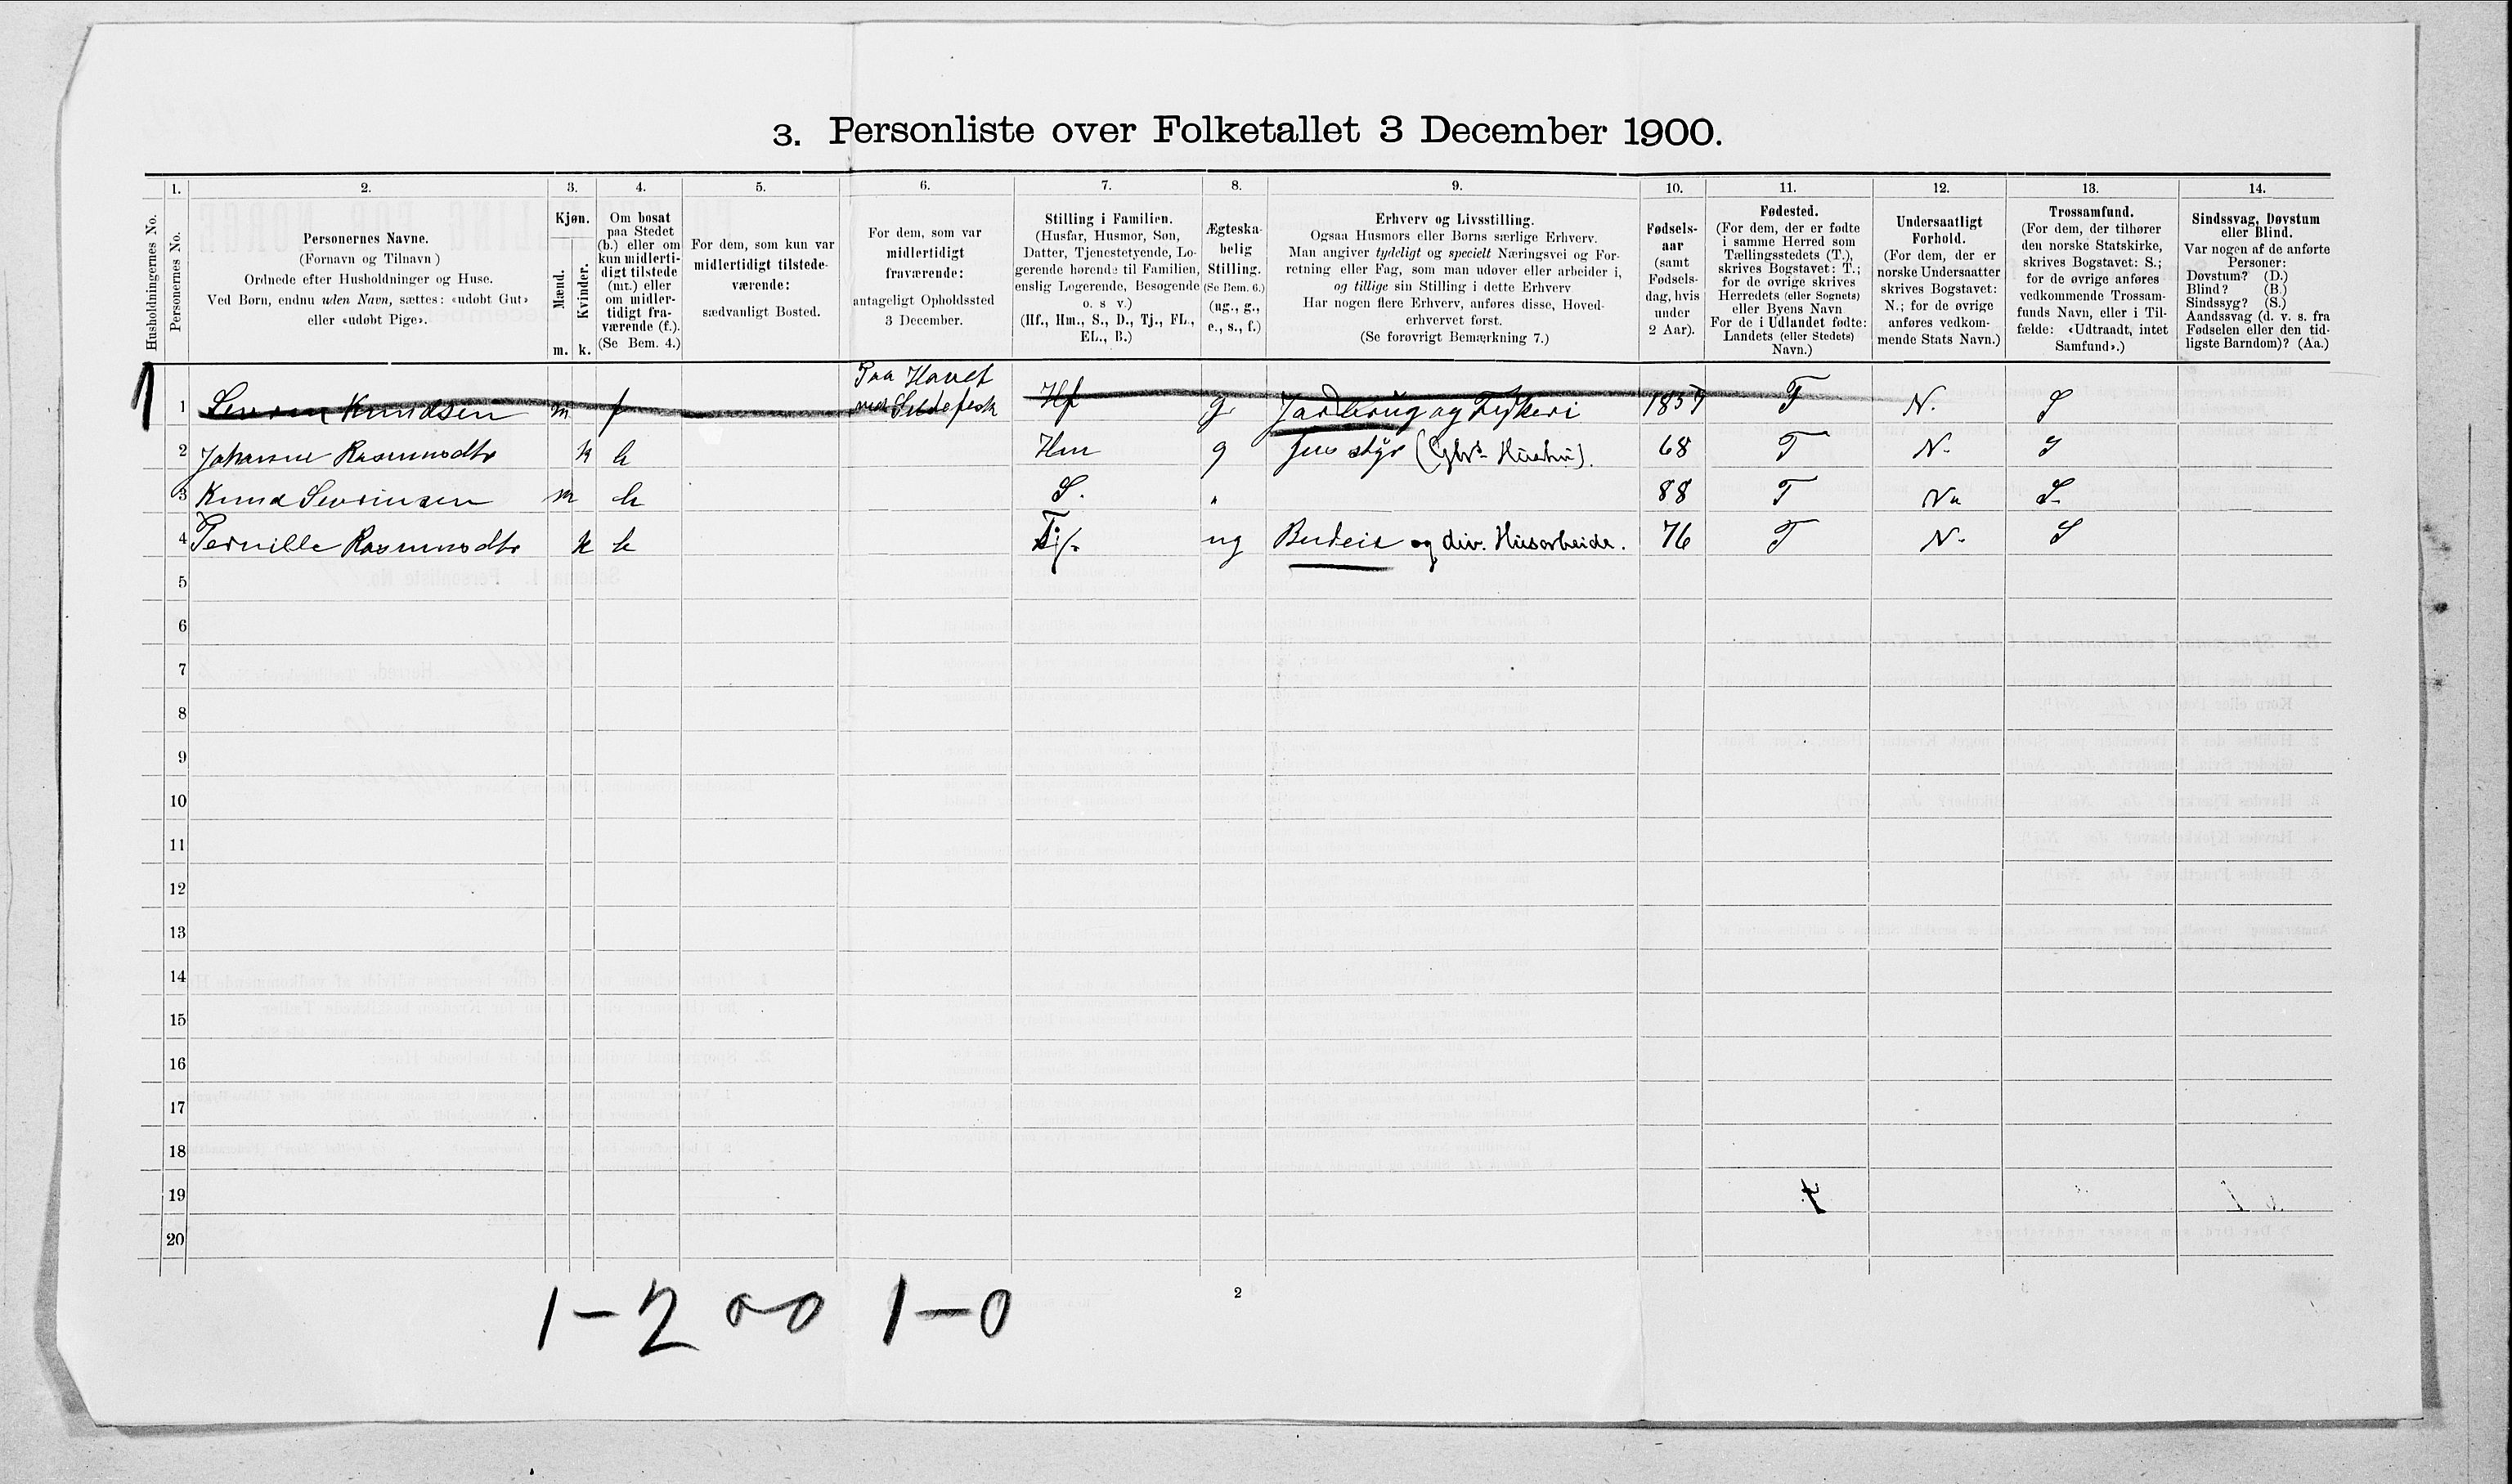 3. Personliste over Folketallet 3 December 1900.
1. 2. 3. 4. 5. 6. 7. 8. 9. 10. 11. 12. 13. 14.
Husholdningernes No.
Personernes No.
Personernes Navne.
(Fornavn og Tilnavn)
Ordnede efter Husholdninger og Huse.
Ved Børn, endnu uden Navn, sættes: «udøbt Gut»
eller «udøbt Pige».
Kjøn.
Mænd.
Kvinder.
m. k.
Om bosat
paa Stedet
(b.) eller om
kun midlerti-
digt tilstede
(mt.) eller
om midler-
tidigt fra-
værende (f.).
(Se Bem. 4.)
For dem, som kun var
midlertidigt tilstede-
værende:
sædvanligt Bosted.
For dem, som var
midlertidigt
fraværende:
antageligt Opholdssted
3 December.
Stilling i Familien.
(Husfar, Husmor, Søn,
Datter, Tjenestetyende, Lo-
gerende hørende til Familien,
enslig Logerende, Besøgende
o. s v.)
(Hf., Hm., S., D., Tj., FL.,
EL., B.)
Ægteska-
belig
Stilling.
(Se Bem. 6.)
(ug., g.,
e., s., f.)
Erhverv og Livsstilling.
Ogsaa Husmors eller Børns særlige Erhverv.
Man angiver tydeligt og specielt Næringsvei og For-
retning eller Fag, som man udøver eller arbeider i,
og tillige sin Stilling i dette Erhverv
Har nogen flere Erhverv, anføres disse, Hoved-
erhvervet først.
(Se forøvrigt Bemærkning 7.)
Fødsels-
aar
(samt
Fødsels-
dag, hvis
under
2 Aar).
Fødested.
(For dem, der er fødte
i samme Herred som
Tællingsstedets (T.),
skrives Bogstavet: T.;
for de øvrige skrives
Herredets (eller Sognets)
eller Byens Navn
For de i Udlandet fødte:
Landets (eller Stedets)
Navn.)
Undersaatligt
Forhold.
(For dem, der er
norske Undersaatter
skrives Bogstavet:
N.; for de øvrige
anføres vedkom-
mende Stats Navn.)
Trossamfund.
(For dem, der tilhører
den norske Statskirke,
skrives Bogstavet: S.;
for de øvrige anføres
vedkommende Trossam-
funds Navn, eller i Til-
fælde: «Udtraadt, intet
Samfund».)
Sindssvag, Døvstum
eller Blind.
Var nogen af de anførte
Personer:
Døvstum? (D.)
Blind? (B.)
Sindssyg? (S.)
Aandssvag (d. v. s. fra
Fødselen eller den tid-
ligste Barndom)? (Aa.)
1 1 Knudsen m f Paa Havet Hf g. Jordbrug og Fiskeri T N. S
2 Johanne Rasmusdtr k b Hm g 68 T N. S
3 Knud Sevrinsen m b S. " 88 T N. S.
4 Pernille Rasmusdtr k b ug Budeie og div. Husarbeide. 76 T N. S
5
6
7
8
9
10
11
12
13
14
15
16
17
18
19
20
2
1 - 2 0-0 1-0